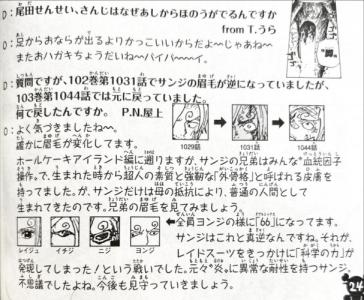 D：尾田せんせい、さんじはなぜあしからほのうがでるんですか
from T.うら
D：足からおならが出るよりかっこいいからだよ〜じゃあね〜
またおハガキちょうだいね〜バイバーイ。
D：質問ですが、102巻第1031話でサンジの眉毛が逆になっていましたが、
103巻第1044話では元に戻っていました。
何で戻したんですか。 P.N.屋上
D：よく気づきましたね〜。
確かに眉毛が変化してます。
1029話
1031話
1044話
ホールケーキアイランド編に遡りますが、サンジの兄弟はみんな“血統因子
操作”で、生まれた時から超人の素質と強靭な「外骨格」と呼ばれる皮膚を
持ってましたが、サンジだけは母の抵抗により、普通の人間として
生まれてきたのです。兄弟の眉毛を見てみましょう。
レイジュ
イチジ
ニジ
ヨンジ
←全員ヨンジの様に「66」になってます。
サンジはこれと真逆なんですね。それが、
レイドスーツをきっかけに「科学の力」が
発現してしまった！という戦いでした。元々“炎”に異常な耐性を持つサンジ。
不思議でしたよね。今後も見守っていきましょう。